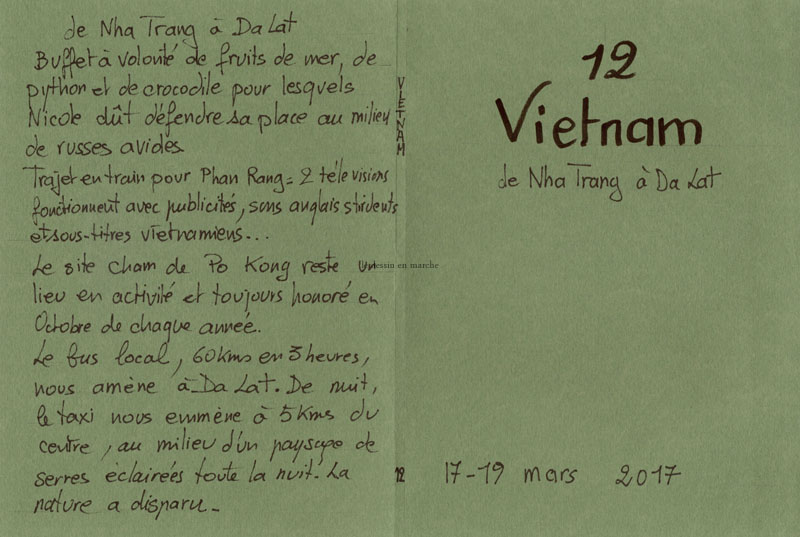 de Nha Trang à Da Lat
Buffet à volonté de fruits de mer, de
python et de crocodile pour lesquels
Nicole dût défendre sa place au milieu
de russes avides
Trajet en train pour Phan Rang = 2 télévisions
fonctionnent avec publicités, sons anglais stridents
et sous-titres vietnamiens...
Le site Cham de Po Kong reste un
lieu en activité et toujours honoré en
Octobre de chaque année.
Le bus local, 60 kms en 3 heures,
nous amène à Da Lat. De nuit,
le taxi nous emmène à 5 kms du
centre, au milieu d'un paysage de
serres éclairées toute la nuit. La
nature a disparu_
VIETNAM
12
dessin en marche
12
Vietnam
de Nha Trang à Da Lat
17-19 mars 2017